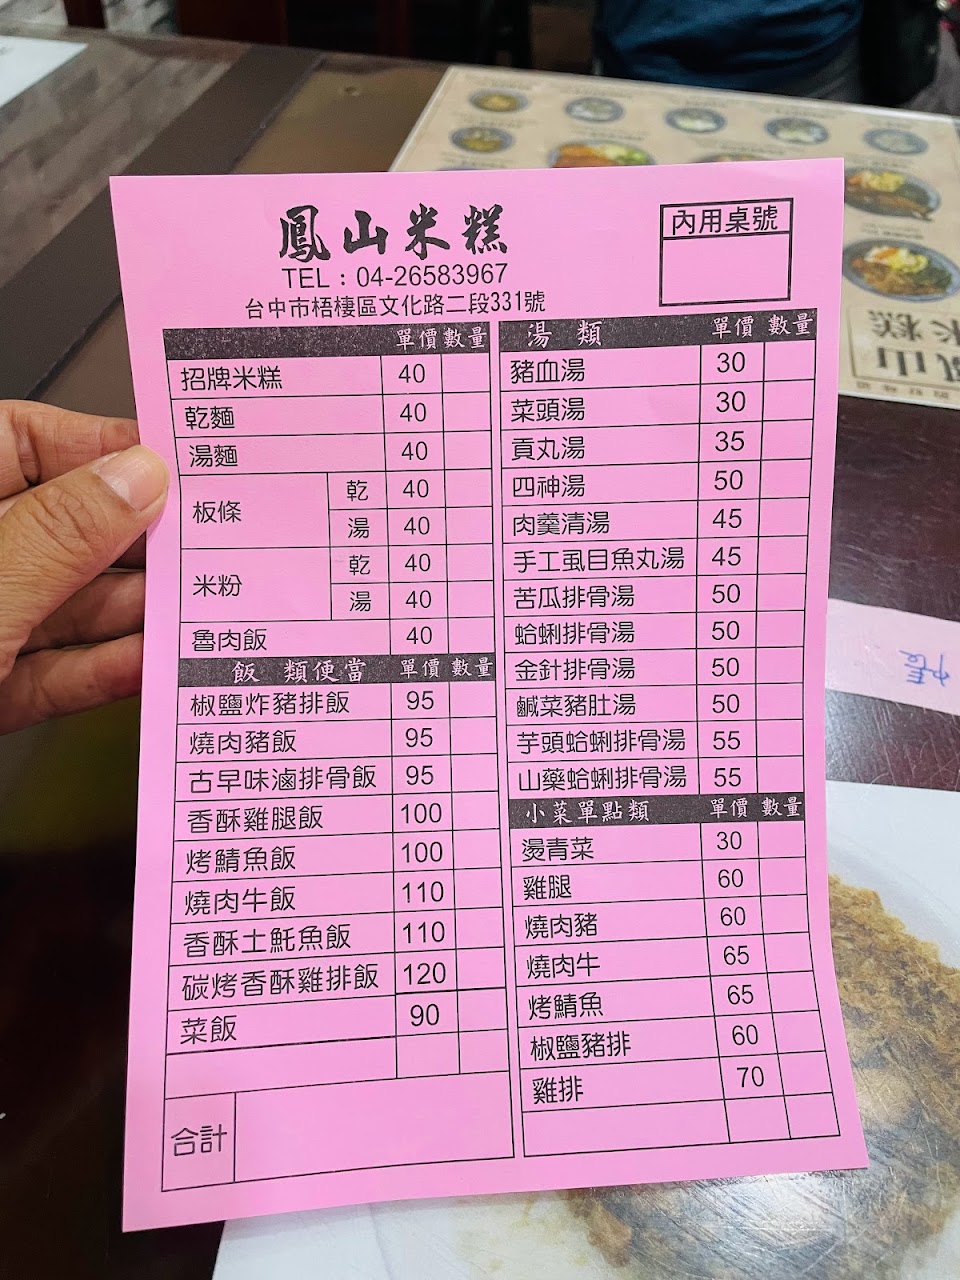 鳳山米糕
TEL：04-26583967
台中市梧棲區文化路二段331號
內用桌號
單價 數量
招牌米糕 40
乾麵 40
湯麵 40
板條 乾 40
湯 40
米粉 乾 40
湯 40
魯肉飯 40
飯類便當 單價 數量
椒鹽炸豬排飯 95
燒肉豬飯 95
古早味滷排骨飯 95
香酥雞腿飯 100
烤鯖魚飯 100
燒肉牛飯 110
香酥土魠魚飯 110
碳烤香酥雞排飯 120
菜飯 90
合計
湯類 單價 數量
豬血湯 30
菜頭湯 30
貢丸湯 35
四神湯 50
肉羹清湯 45
手工虱目魚丸湯 45
苦瓜排骨湯 50
蛤蜊排骨湯 50
金針排骨湯 50
鹹菜豬肚湯 50
芋頭蛤蜊排骨湯 55
山藥蛤蜊排骨湯 55
小菜單點類 單價 數量
燙青菜 30
雞腿 60
燒肉豬 60
燒肉牛 65
烤鯖魚 65
椒鹽豬排 60
雞排 70
鳳山
米糕